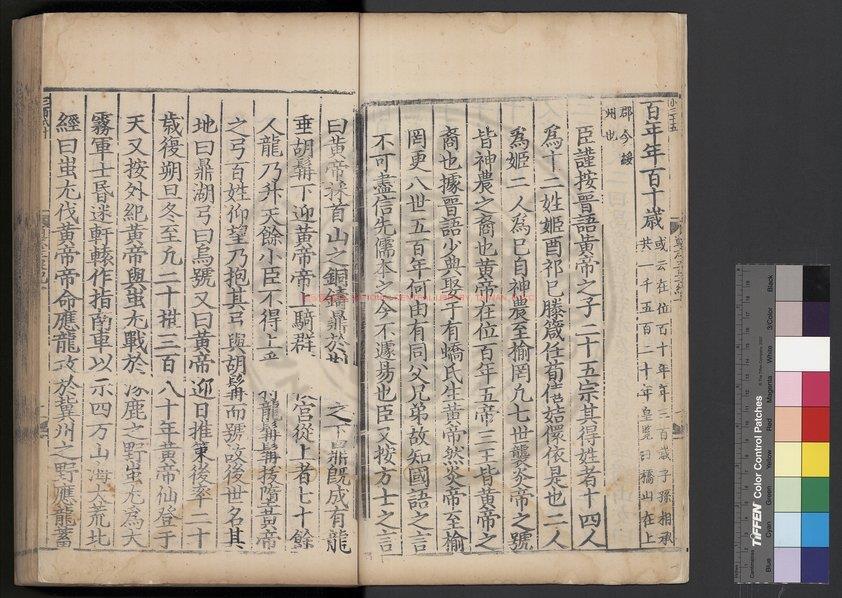 百年年百十歲 或云在位百十年年三百歲子孫相承
共一千五百二十年皇覽曰橋山在上
郡今綏
州也
臣謹按晉語黃帝之子二十五宗其得姓者十四人
為十二姓姬酉祁巳滕箴任荀僖姞儇依是也二人
為姬二人為巳自神農至榆罔凡七世襲炎帝之號
皆神農之裔也黃帝在位百年五帝三王皆黃帝之
裔也據晉語少典娶子有蟜氏生黃帝然炎帝至榆
罔更八世五百年何由有同父兄弟故知國語之言
不可盡信先儒本之今不遽易也臣又按方士之言
曰黃帝採首山之銅鑄鼎於荆 之下鼎既成有龍
垂胡髯下迎黃帝帝上騎群 宮從上者七十餘
人龍乃升天餘小臣不得上 龍髯髯拔隨黃帝
之弓百姓仰望乃抱其弓與胡髯而號故後世名其
地曰鼎湖弓曰烏號又曰黃帝迎日推策後率二十
歲復朔旦冬至凡二十推三百八十年黃帝仙登于
天又按外紀黃帝與蚩尤戰於涿鹿之野蚩尤為大
霧軍士昏迷軒轅作指南車以示四方山海大荒北
經曰蚩尤伐黃帝帝命應龍攻於冀州之野應龍蓄
TIFFEN Color Control Patches
Blue
Cyan
Green
Yellow
Red
Magenta
White
3/Color
Black